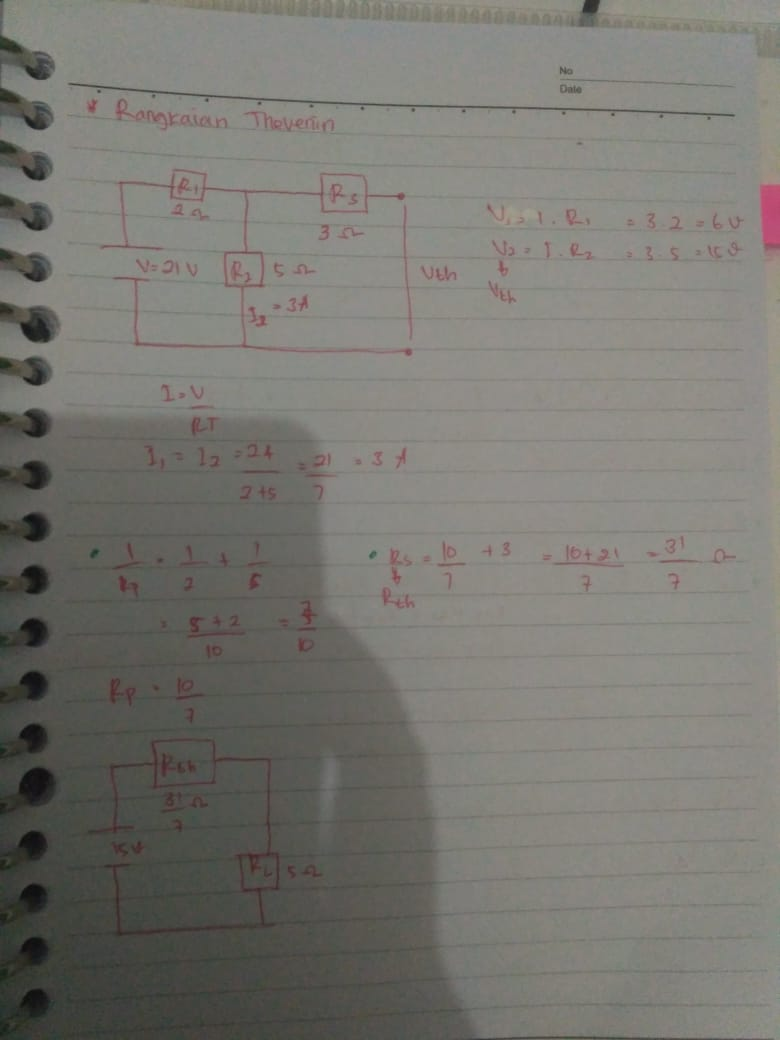 No
Date
* Rangkaian Thevenin
R1
2 Ω
R3
3 Ω
V = 21 V
R2
5 Ω
I2 = 3A
Vth
V1 = I . R1 = 3 . 2 = 6 V
V2 = I . R2 = 3 . 5 = 15 V
Vth
I = V
RT
I1 = I2 = 21 = 21 = 3 A
2+5 7
• 1 = 1 + 1
Rp 2 5
= 5 + 2 = 7
10 10
Rp = 10
7
• Rs = 10 + 3 = 10+21 = 31 Ω
7 7 7
Rth
Rth
31 Ω
7
15 V
RL
5 Ω